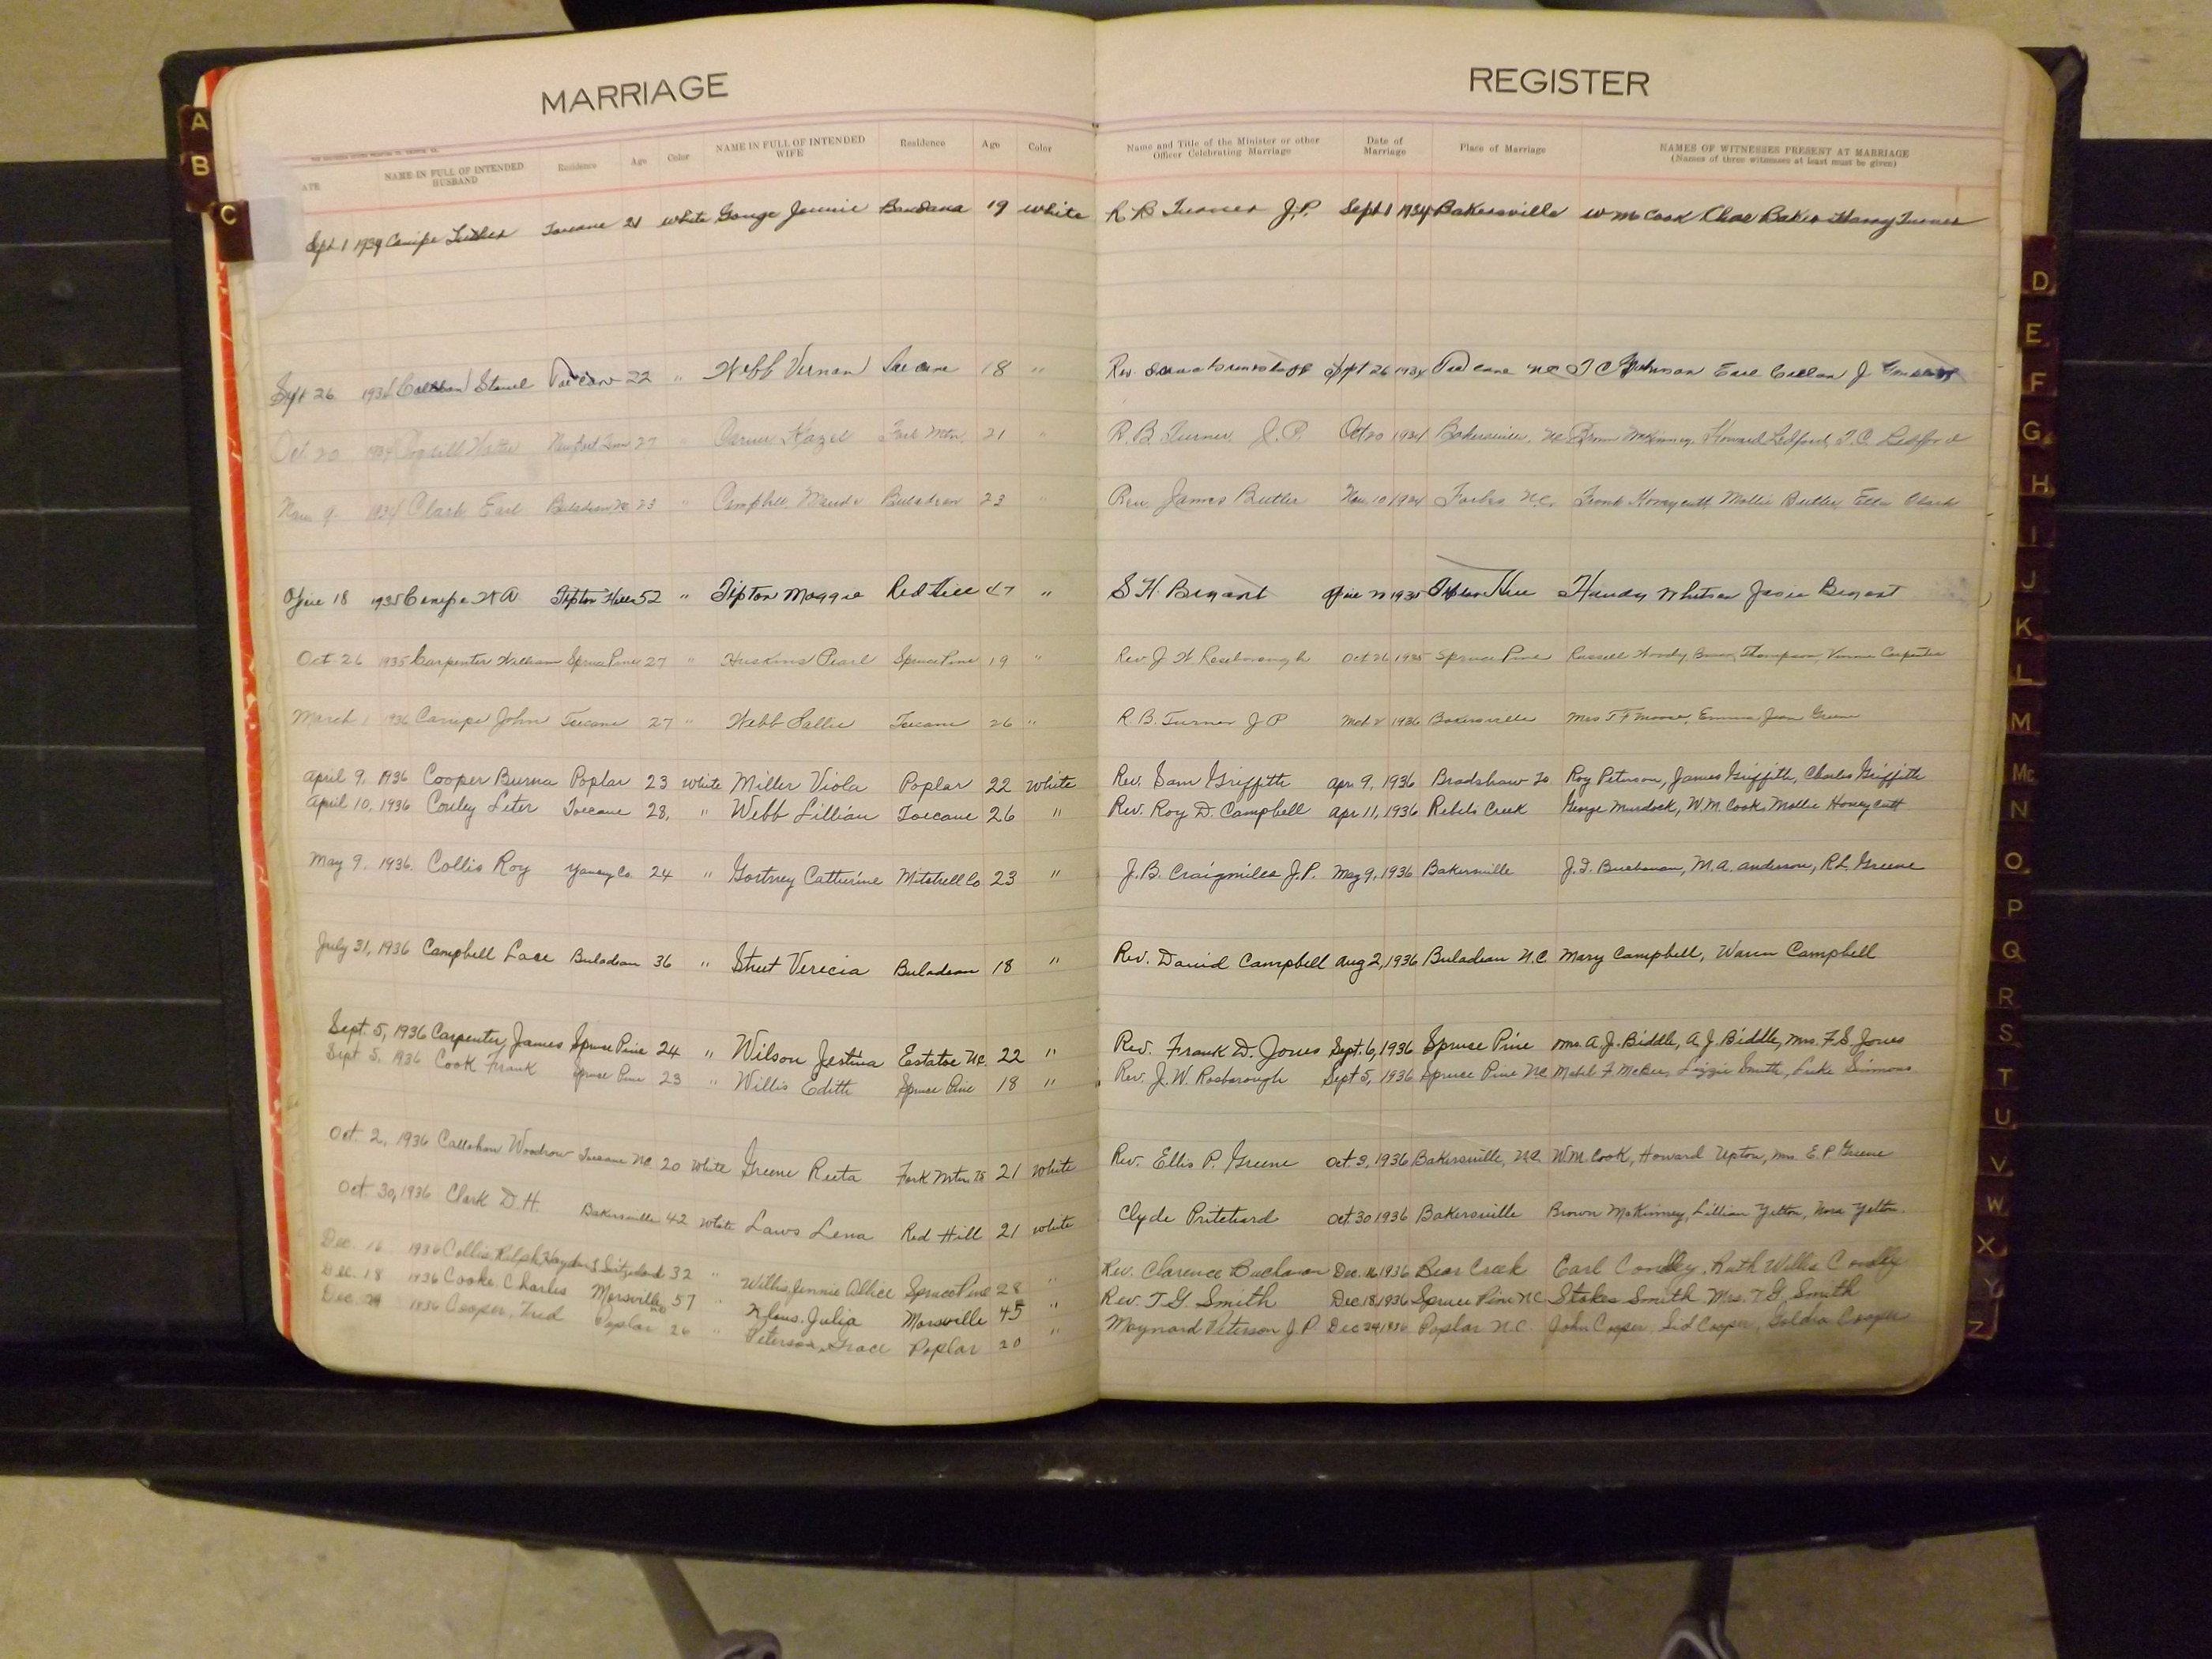 MARRIAGE REGISTER
A
B
C
ATE NAME IN FULL OF INTENDED HUSBAND Residence Age Color NAME IN FULL OF INTENDED WIFE Residence Age Color Name and Title of the Minister or other Officer Celebrating Marriage Date of Marriage Place of Marriage NAMES OF WITNESSES PRESENT AT MARRIAGE (Names of three witnesses at least must be given)
Sept 1 1934 Canipe Toecane 21 white Gouge Jennie Bandana 19 white R B Turner J.P. Sept 1 1934 Bakersville W M Cook Baker Harry Turner
Sept 26 1934 Toecane 22 " Webb Vernan Toecane 18 " Rev. Sept 26 1934 Toecane NC
Oct 20 1934 27 " Hazel Fork Mtn. 21 " R. B. Turner, J. P. Oct 20 1934 Bakersville, NC Brown McKinney, Howard Ledford, T.C. Ledford
Nov 9 1934 Clark Earl Buladean NC 23 " Campbell Maude Buladean 23 " Rev James Butler Nov. 10 1934 Forbes N.C. Frank Honeycutt, Mollie Butler, Ella Clark
18 1935 Canipe W A Tipton Hill 52 " Tipton Maggie Red Hill 47 " S. H. Bryant 1935 Tipton Hill Handy Whitson Josie Bryant
Oct 26 1935 Carpenter William Spruce Pine 27 " Huskins Pearl Spruce Pine 19 " Rev J W Roseborough Oct 26 1935 Spruce Pine Russell Woody, Thompson, Carpenter
March 1 1936 Canipe John Toecane 27 " Webb Sallie Toecane 26 " R B. Turner J P Mch. 2 1936 Bakersville Mrs T F Moose, Emma Jean Greene
April 9, 1936 Cooper Burna Poplar 23 white Miller Viola Poplar 22 white Rev. Sam Griffith Apr 9, 1936 Bradshaw To. Roy Peterson, James Griffith, Charles Griffith
April 10, 1936 Couley Leter Toecane 28, " Webb Lillian Toecane 26 " Rev. Roy D. Campbell Apr 11, 1936 Rebels Creek George Murdock, W.M. Cook, Mollie Honeycutt
May 9. 1936. Collis Roy Yancy Co. 24 " Gortney Catherine Mitchell Co 23 " J. B. Craigmiles J.P. May 9, 1936 Bakersville Buchanan, M.A. Anderson, R L. Greene
July 31, 1936 Campbell Lace Buladean 36 " Street Verecia Buladean 18 " Rev. David Campbell Aug 2, 1936 Buladean N.C. Mary Campbell, Campbell
Sept. 5, 1936 Carpenter, James Spruce Pine 24 " Wilson Jestina Estatoe NC. 22 " Rev. Frank D. Jones Sept. 6, 1936 Spruce Pine Mrs. A. J. Biddle, A. J. Biddle, Mrs. F.S. Jones
Sept. 5, 1936 Cook Frank Spruce Pine 23 " Willis Edith Spruce Pine 18 " Rev. J. W. Rosborough Sept 5, 1936 Spruce Pine NC Mabel F McBee, Lizzie Smith, Luke Simmons
Oct. 2, 1936 Callahan Woodrow Toecane NC. 20 white Greene Reeta Fork Mtn. 21 white Rev. Ellis P. Greene Oct. 3, 1936 Bakersville, N.C. W.M. Cook, Howard Upton, Mrs E. P. Greene
Oct. 30, 1936 Clark D. H. Bakersville 42 white Laws Lena Red Hill 21 white Clyde Pritchard Oct. 30 1936 Bakersville Brown McKinney, Lillian Yelton, Nora Yelton.
Dec. 16 1936 Collis, Ralph Hayden Switzerland 32 " Willis, Jennie Allice Spruce Pine 28 " Rev. Clarence Buchanan Dec. 16 1936 Bear Creek Earl Ruth Willis
Dec. 18 1936 Cooke Charles Morsville 57 " Julia Morsville 45 " Rev. T. G. Smith Dec 18, 1936 Spruce Pine NC Stokes Smith Mrs. T. G. Smith
Dec. 24 1936 Cooper, Fred Poplar 26 " Peterson, Grace Poplar 20 " Maynard Peterson J.P Dec 24, 1936 Poplar N.C. John Cooper, Sid Cooper, Goldia Cooper
D
E
F
G
H
I
J
K
L
M
Mc
N
O
P
Q
R
S
T
U
V
W
X
Y
Z